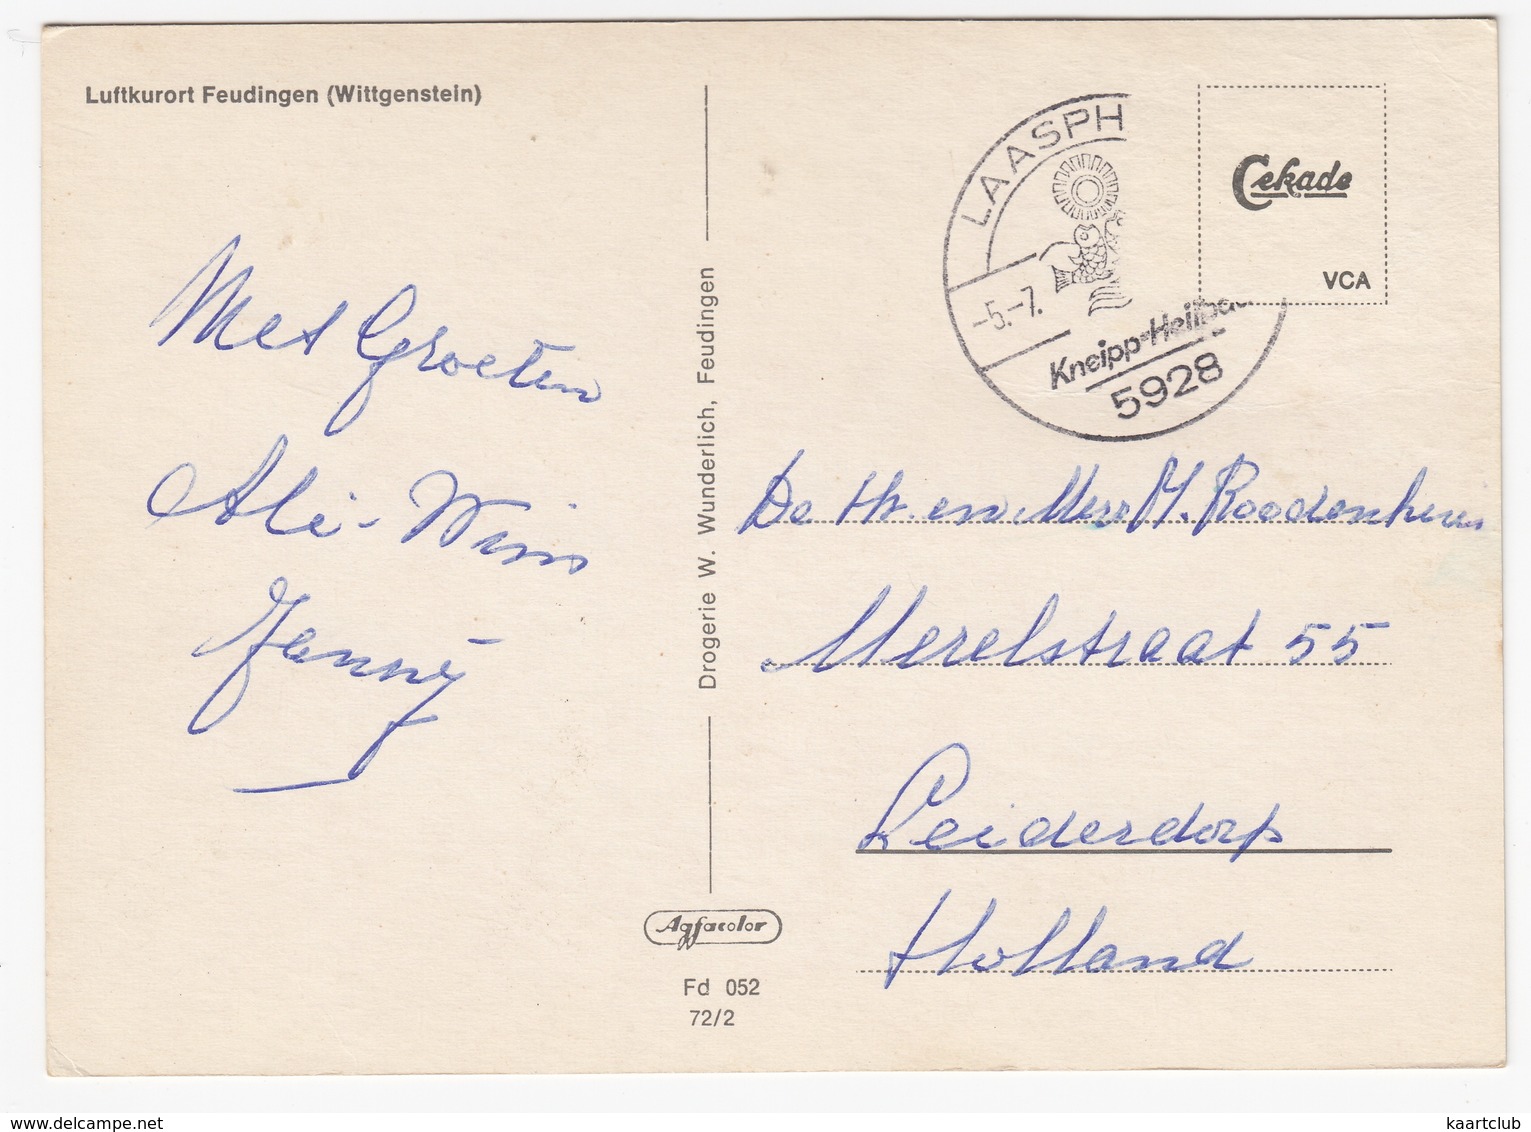 Luftkurort Feudingen (Wittgenstein)
Met Groeten
Ali - Wim
Janny
Drogerie W. Wunderlich, Feudingen
Agfacolor
Fd 052
72/2
LAASPH
-5.-7.
Kneipp-Heilbad
5928
Cekade
VCA
De Hr. en Mevr M. Roodenburg
Merelstraat 55
Leiderdorp
Holland
delcampe.net
kaartclub